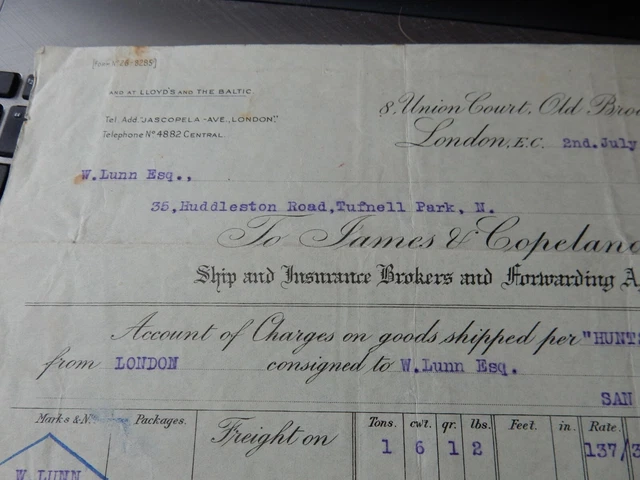 AND AT LLOYD'S AND THE BALTIC
Tel. Add. "JASCOPELA-AVE., LONDON."
Telephone Nº 4882 CENTRAL.
8, Union Court, Old Broa
London, E.C. 2nd. July
W. Lunn Esq.,
35, Huddleston Road, Tufnell Park, N.
To James & Copeland
Ship and Insurance Brokers and Forwarding A
Account of Charges on goods shipped per "HUNTS
from LONDON consigned to W. Lunn Esq.
SAN
Marks & Nos. Packages. Freight on Tons. cwt. qr. lbs. Feet. in. Rate.
1 6 1 2 137/3
W LUNN